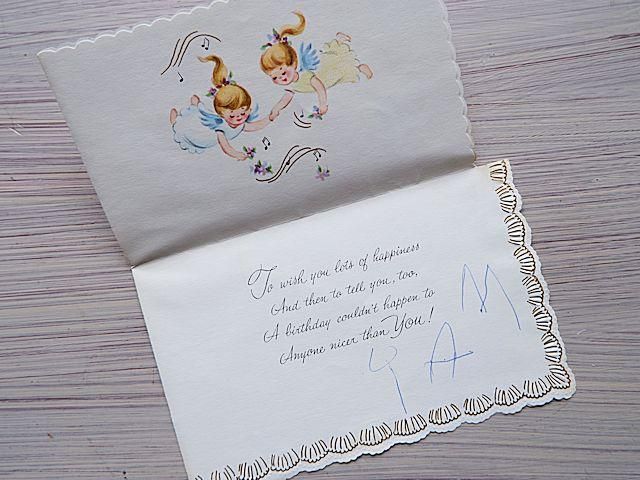 To wish you lots of happiness
And then to tell you, too,
A birthday couldn't happen to
Anyone nicer than You!
M
A